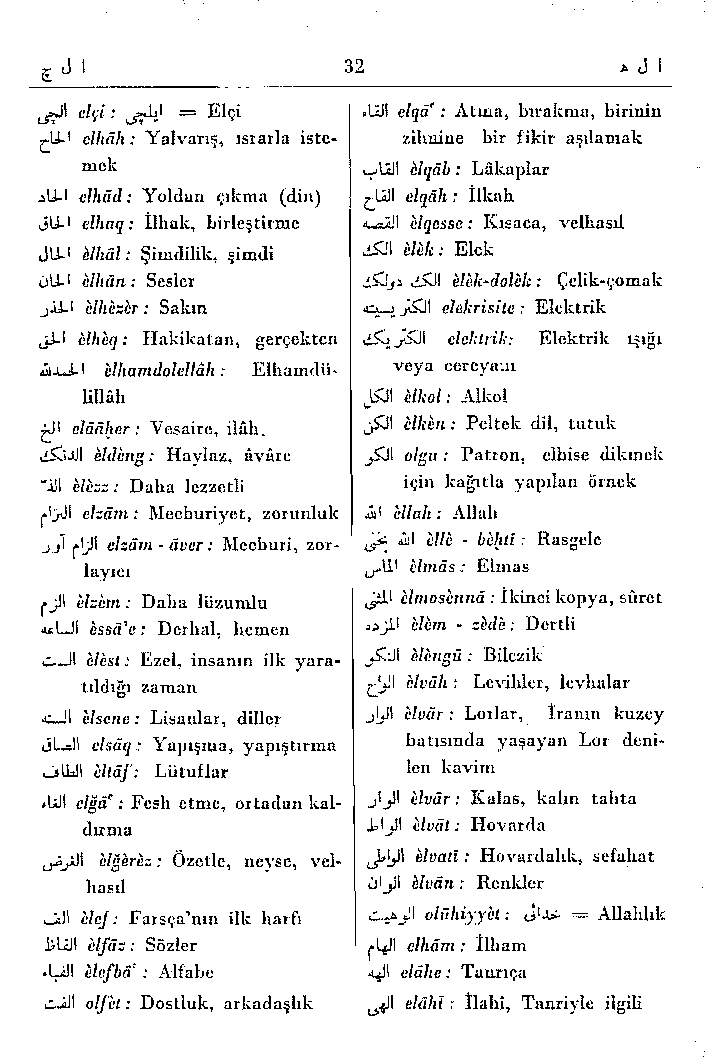 ا ل چ
32
ا ل ه
الچی elçi : ایلچی = Elçi
الحاح elhāh : Yalvarış, ısrarla iste-
mek
الحاد elhād : Yoldan çıkma (din)
الحاق elhaq : İlhak, birleştirme
الحال èlhāl : Şimdilik, şimdi
الحان èlhān : Sesler
الحذر èlhèzèr : Sakın
الحق èlhèq : Hakikatan, gerçekten
الحمدلله èlhamdolellâh : Elhamdü-
lillâh
الخ elāāḫer : Vesaire, ilâh.
الدنگ èldèng : Haylaz, âvâre
الذ èlèzz : Daha lezzetli
الزام elzām : Mecburiyet, zorunluk
الزام آور elzām - āver : Mecburi, zor-
layıcı
الزم èlzèm : Daha lüzumlu
الساعه èssā'e : Derhal, hemen
الست èlèst : Ezel, insanın ilk yara-
tıldığı zaman
السنه èlsene : Lisanlar, diller
الصاق elsāq : Yapışma, yapıştırma
الطاف èltāf : Lütuflar
الغاء elğāʿ : Fesh etme, ortadan kal-
dırma
الغرض èlğèrèz : Özetle, neyse, vel-
hasıl
الف èlef : Farsça'nın ilk harfi
الفاظ èlfāz : Sözler
الفباء èlefbāʿ : Alfabe
الفت olfèt : Dostluk, arkadaşlık
القاء elqāʿ : Atma, bırakma, birinin
zihnine bir fikir aşılamak
القاب èlqāb : Lâkaplar
القاح elqāh : İlkah
القصه èlqesse : Kısaca, velhasıl
الک èlèk : Elek
الک دولک èlèk-dolèk : Çelik-çomak
الکتریسیته elektrisite : Elektrik
الکتریک elektrik: Elektrik ışığı
veya cereyanı
الکل èlkol : Alkol
الکن èlkèn : Peltek dil, tutuk
الگو olgu : Patron, elbise dikmek
için kağıtla yapılan örnek
الله èllah : Allah
الله بختی èllè - bèḫtī : Rasgele
الماس èlmās : Elmas
المثنی èlmosènnā : İkinci kopya, sûret
الم زده èlèm - zèdè : Dertli
النگو èlèngū : Bilezik
الواح èlvāh : Levihler, levhalar
الوار èlvār : Lorlar, İranın kuzey
batısında yaşayan Lor deni-
len kavim
الوار èlvār : Kalas, kalın tahta
الواط èlvāt : Hovarda
الواطی èlvatī : Hovardalık, sefahat
الوان èlvān : Renkler
الوهیت olūhiyyèt : خدائی = Allahlık
الهام elhām : İlham
الهه elāhe : Tanrıça
الهی elāhī : İlahî, Tanriyle ilgili